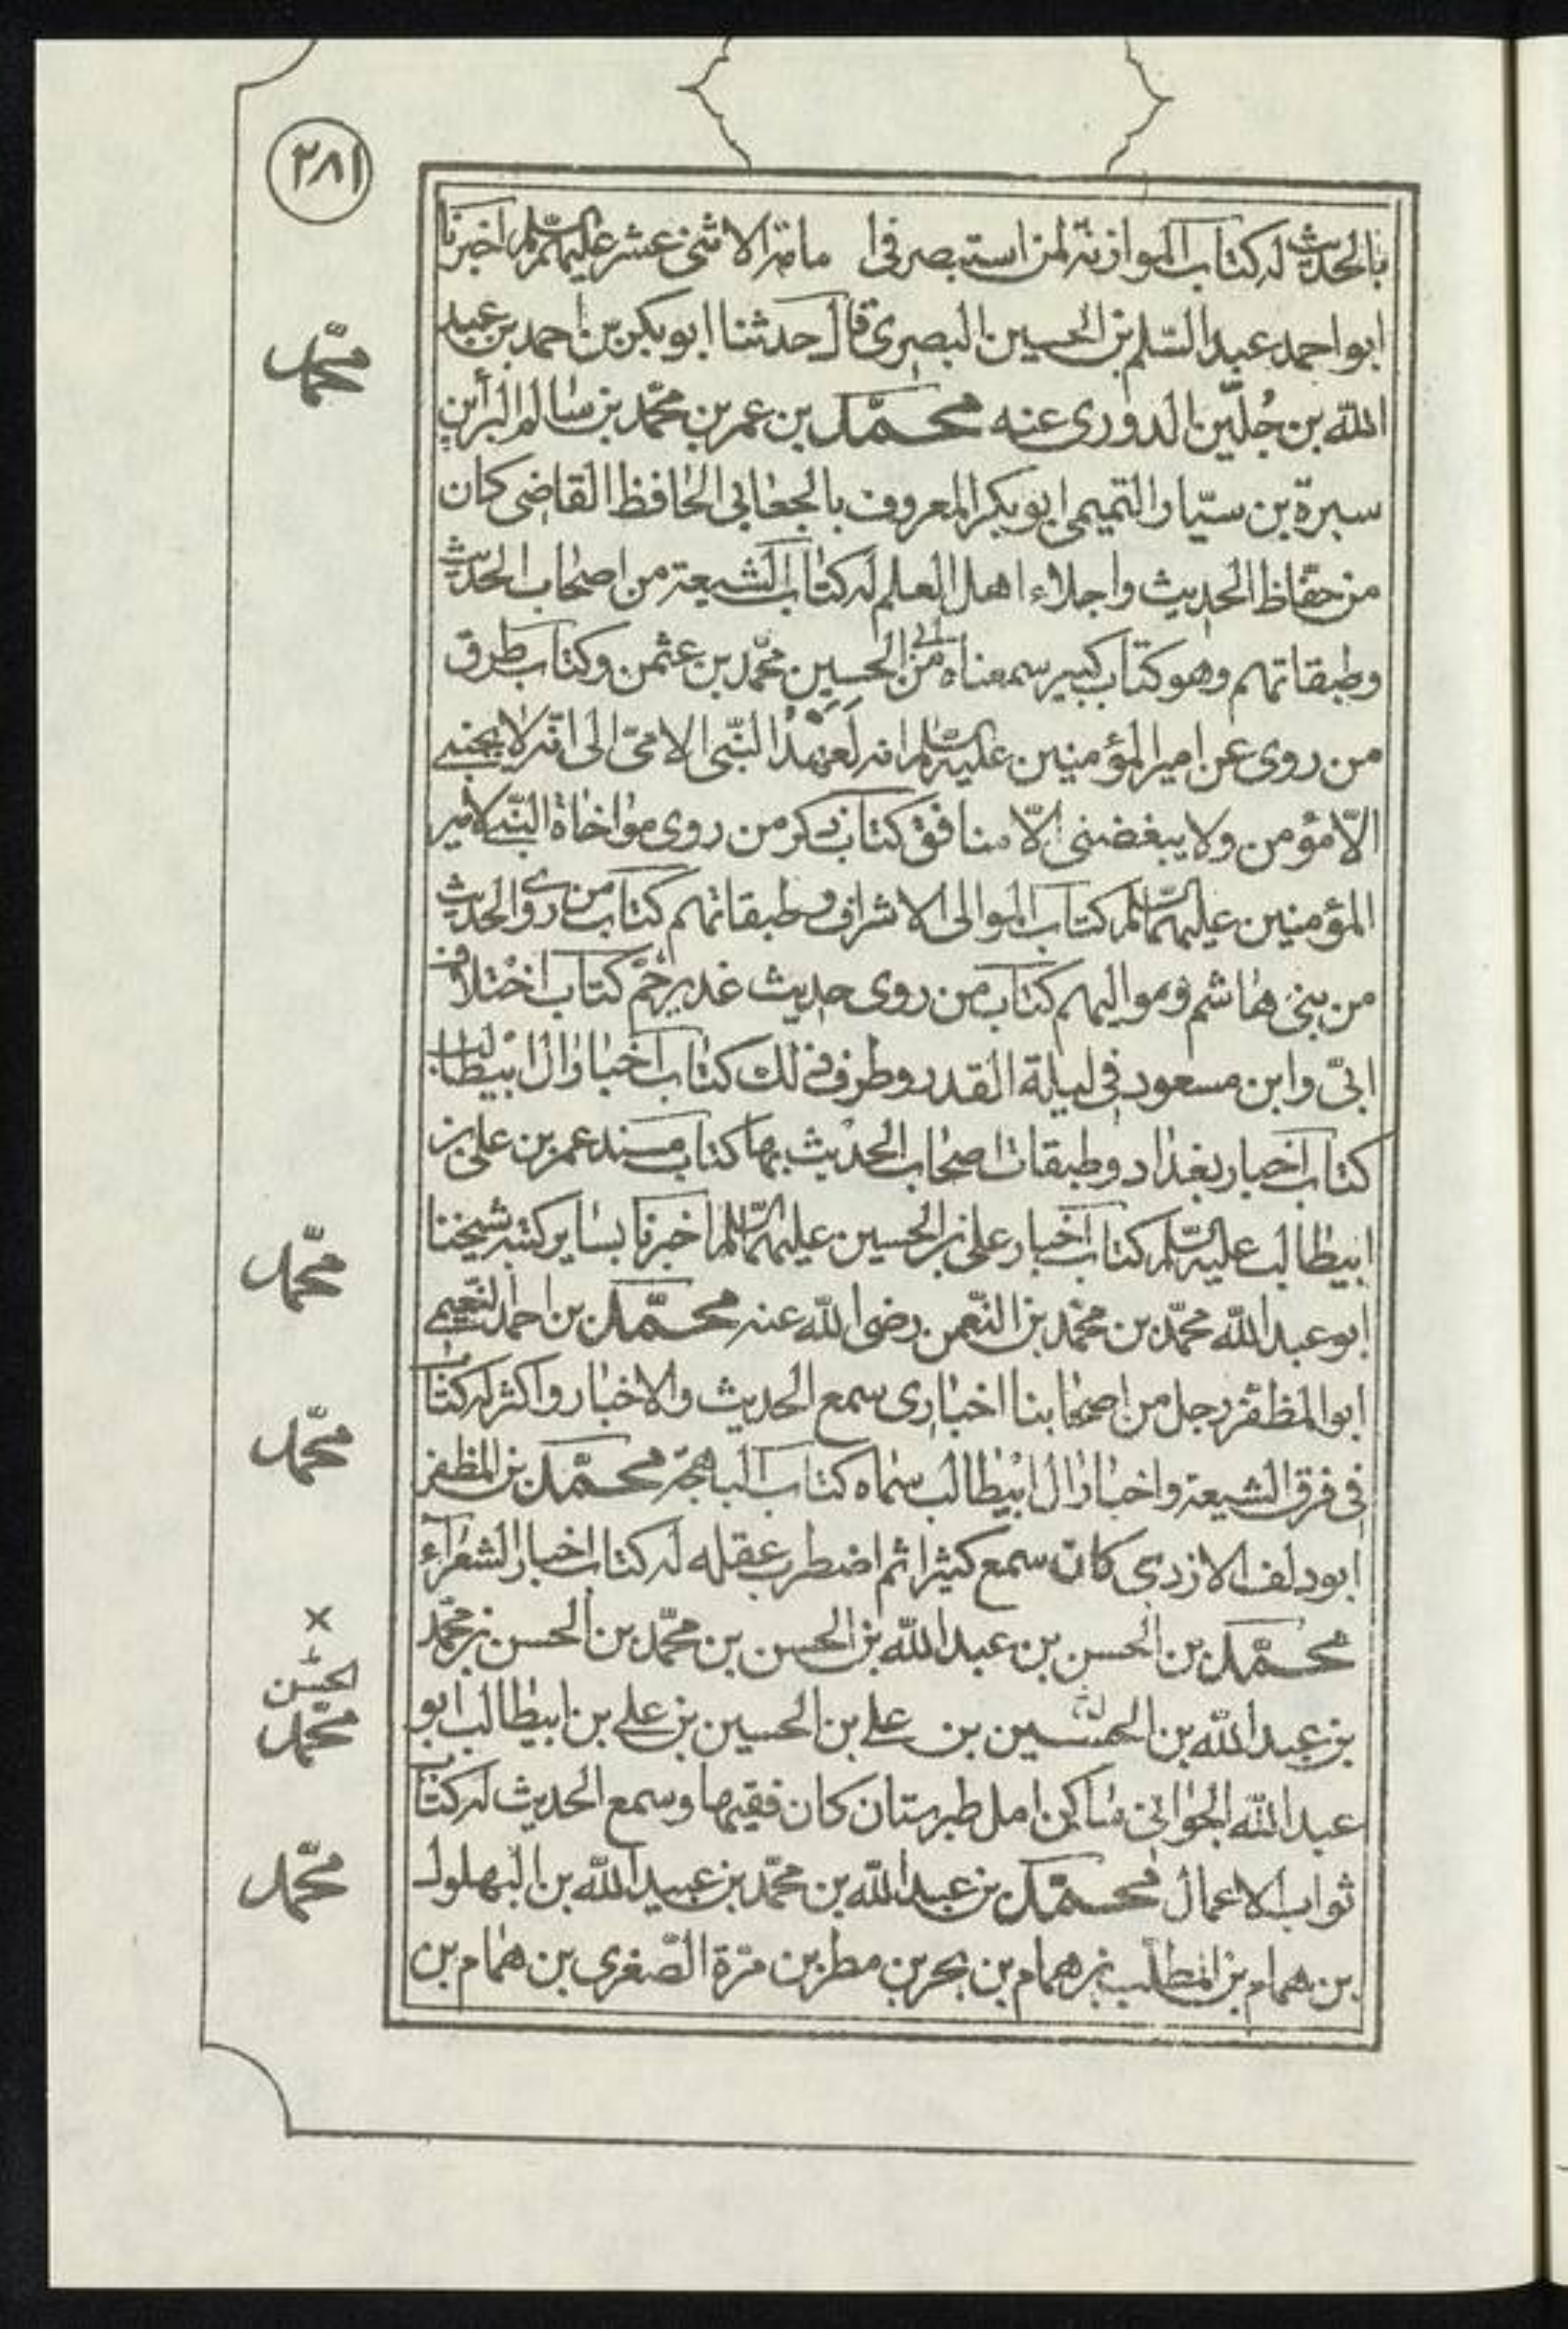 ٢٨١
بالحديث له كتاب الموازنة لمن استبصر فى امامة الاثنى عشر عليهم السّلم اخبرنا
ابو احمد عبد السّلم بن الحسين البصرى قال حدثنا ابو بكر بن احمد بن عبد
اللّه بن جُلّين الدورى عنه محمّد بن عمر بن محمّد بن سالم البرأبن
سبرة بن سيّار التميمى ابو بكر المعروف بالجعابى الحافظ القاضى كان
من حفّاظ الحديث واجلاء اهل العلم له كتاب الشيعة من اصحاب الحديث
وطبقاتهم وهو كتاب كبير سمعناه من ابى الحسين محمّد بن عثمن وكتاب طرق
من روى عن امير المؤمنين عليه السّلم انه لَعهدُ النّبى الامىّ الى انّه لا يحبنى
الّا مؤمن ولا يبغضنى الّا منافق كتاب ذكر من روى مواخاة النّبى لامير
المؤمنين عليهما السّلم كتاب الموالى الاشراف وطبقاتهم كتاب من روى الحديث
من بنى هاشم ومواليهم كتاب من روى حديث غدير خمّ كتاب اختلاف
ابىّ وابن مسعود فى ليلة القدر وطرف ذلك كتاب اخبار ال ابيطالب
كتاب اخبار بغداد وطبقات اصحاب الحديث بها كتاب مسند عمر بن على بن
ابيطالب عليه السّلم كتاب اخبار على بن الحسين عليهما السّلم اخبرنا بساير كتبه شيخنا
ابو عبد اللّه محمّد بن محمّد بن النّعمن رضى اللّه عنه محمّد بن احمد النّعيمى
ابو المظفّر رجل من اصحابنا اخبارى سمع الحديث والاخبار واكثر له كتاب
فى فرق الشيعة واخبار ال ابيطالب سمّاه كتاب البهجة محمّد بن المظفر
ابو دلف الازدى كان سمع كثيرا ثم اضطرب عقله له كتاب اخبار الشعرآء
محمّد بن الحسن بن عبد اللّه بن الحسن بن محمّد بن الحسن بن محمّد
بن عبد اللّه بن الحسين بن على بن الحسين بن على بن ابيطالب ابو
عبد اللّه الجوانى ساكن امل طبرستان كان فقيها وسمع الحديث له كتاب
ثواب الاعمال محمّد بن عبد اللّه بن محمّد بن عبيد اللّه بن البهلول
بن همام بن المطلّب بن همام بن بحر بن مطر بن مرّة الصّغرى بن همام بن
محمّد
محمّد
محمّد
×
الحسن
محمّد
محمّد